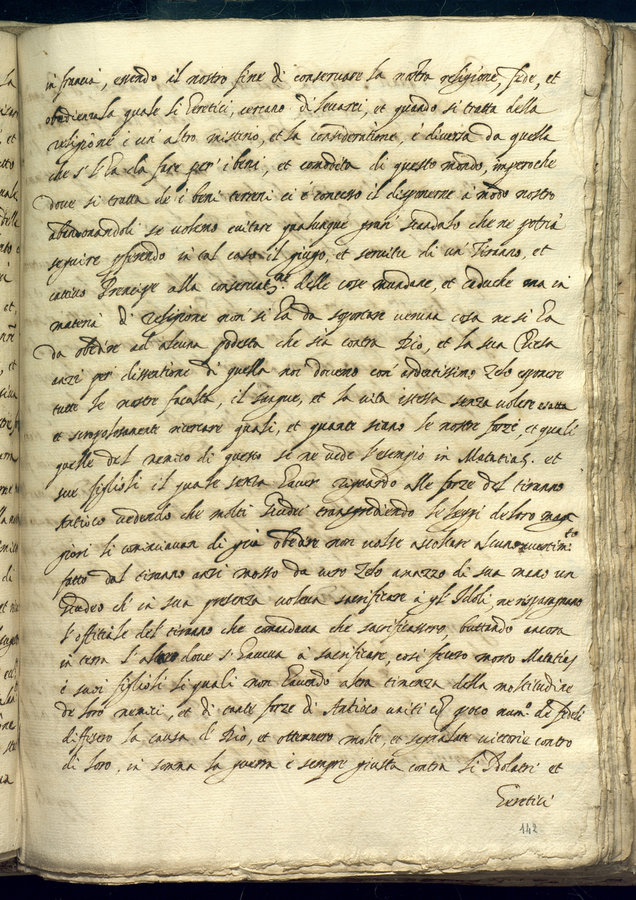 in francia, essendo il nostro fine di conservare la nostra religione, fede, et
obedienza la quale li Eretici, cercano di levarci, et quando si tratta della
religione è un altro misterio, et la consideratione, è diversa da quella
che s'ha da fare per i beni, et commodità di questo mondo, imperoche
dove si tratta de i beni terreni ci è concesso il disponerne à modo nostro
abandonandoli se volemo evitare qualunque gran scandalo che ne potria
seguire offrendo in tal caso il giogo, et servitù di un Tiranno, et
cattivo Principe alla conservat.ne delle cose mundane, et caduche ma in
materia di religione non si ha da sopportare veruna cosa ne si ha
da obedire ad alcuna podestà che sia contra Dio, et la sua Chiesa
anzi per dissentione di quella noi dovemo con ardentissimo zelo esponere
tutte le nostre facultà, il sangue, et la vita istessa senza volere esatta
et scrupolosamente ricercare quali, et quante siano le nostre forze, et quali
quelle del nemico di questo se ne vede l'esempio in Matatias et
suoi figlioli il quale senza haver riguardo alle forze del tiranno
Antioco vedendo che molti Giudei transgrediendo le leggi de loro mag
giori li cominciavan di già obedire non volse ascoltare alcuno
fatto dal tiranno anzi mosso da vero zelo amazzò di sua mano un
Giudeo ch' in sua presenza voleva sacrificare à gl' Idoli, ne risparagnano
l'offitiale del tiranno che comandava che sacrificassero, buttando ancora
in terra l'altare dove s'haveva à sacrificare, così fecero morto Matatias
i suoi figlioli li quali non havendo altra timenza della moltitudine
de loro nemici, et di tante forze di Antioco uniti con poco num.o de fedeli
difesero la causa di Dio, et ottennero molte, et segnalate vittorie contro
di loro, in somma la guerra è sempre giusta contra li Idolatri et
Eretici
142